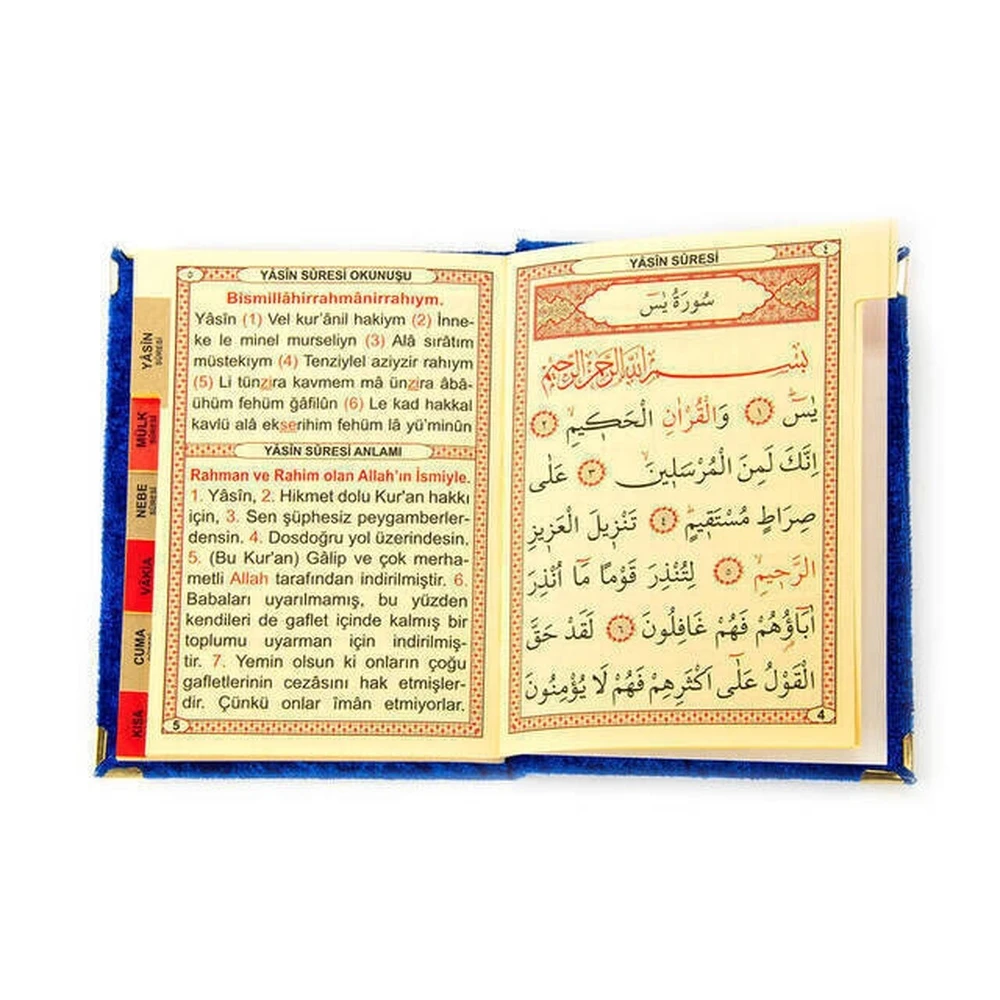 YÂSÎN SÛRESİ
٤
سُورَةُ يٰسٓ
بِسْمِ اللّٰهِ الرَّحْمٰنِ الرَّحٖيمِ
يٰسٓ ۚ ﴿١﴾ وَالْقُرْاٰنِ الْحَكٖيمِ ۙ ﴿٢﴾
اِنَّكَ لَمِنَ الْمُرْسَلٖينَ ۙ ﴿٣﴾ عَلٰى
صِرَاطٍ مُسْتَقٖيمٍ ۜ ﴿٤﴾ تَنْزٖيلَ الْعَزٖيزِ
الرَّحٖيمِ ۙ ﴿٥﴾ لِتُنْذِرَ قَوْمًا مَٓا اُنْذِرَ
اٰبَٓاؤُ۬هُمْ فَهُمْ غَافِلُونَ ﴿٦﴾ لَقَدْ حَقَّ
الْقَوْلُ عَلٰٓى اَكْثَرِهِمْ فَهُمْ لَا يُؤْمِنُونَ
4
٥
YÂSÎN SÛRESİ OKUNUŞU
Bismillâhirrahmânirrahıym.
Yâsîn (1) Vel kur’ânil hakiym (2) İnne-
ke le minel murseliyn (3) Alâ sırâtım
müstekıym (4) Tenziylel aziyzir rahıym
(5) Li tünzira kavmem mâ ünzira âbâ-
ühüm fehüm ğâfilûn (6) Le kad hakkal
kavlü alâ ekserihim fehüm lâ yü’minûn
YÂSÎN SÛRESİ ANLAMI
Rahman ve Rahim olan Allah’ın İsmiyle.
1. Yâsîn, 2. Hikmet dolu Kur'an hakkı
için, 3. Sen şüphesiz peygamberler-
densin. 4. Dosdoğru yol üzerindesin.
5. (Bu Kur'an) Gâlip ve çok merha-
metli Allah tarafından indirilmiştir. 6.
Babaları uyarılmamış, bu yüzden
kendileri de gaflet içinde kalmış bir
toplumu uyarman için indirilmiş-
tir. 7. Yemin olsun ki onların çoğu
gafletlerinin cezâsını hak etmişler-
dir. Çünkü onlar îmân etmiyorlar.
5
YÂSÎN
SÛRESİ
MÜLK
SÛRESİ
NEBE
SÛRESİ
VÂKIA
CUMA
KISA